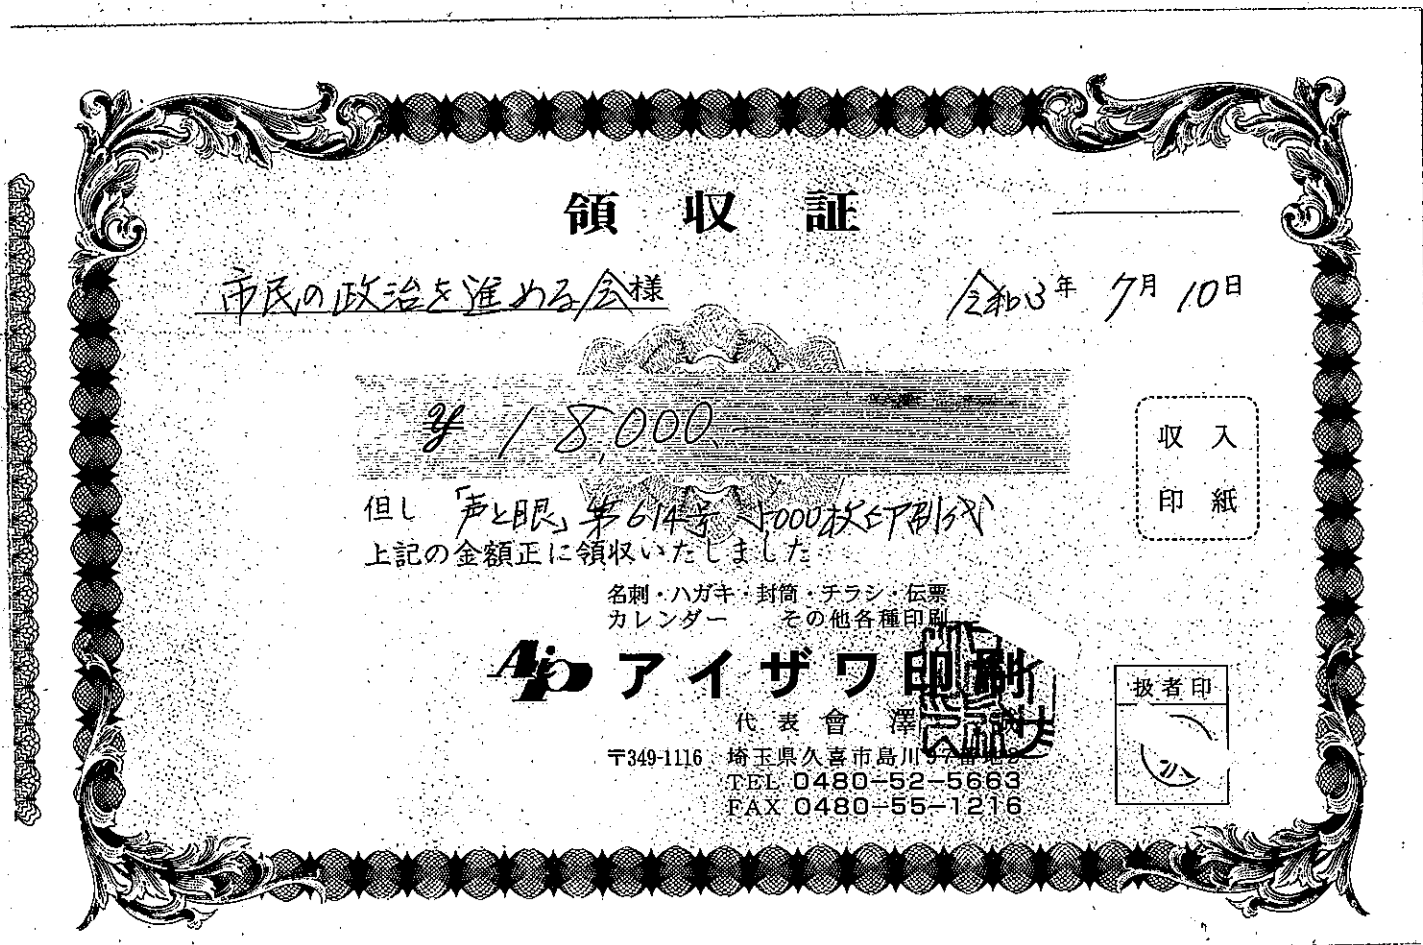 領収証
市民の政治を進める会様
令和3年 7月 10日
¥18,000.-
収入
印紙
但し 「声と眼」第614号 4000枚印刷代
上記の金額正に領収いたしました
名刺・ハガキ・封筒・チラシ・伝票
カレンダー その他各種印刷
Aip アイザワ印刷
代表 會澤
〒349-1116 埼玉県久喜市島川97番地
TEL 0480-52-5663
FAX 0480-55-1216
扱者印